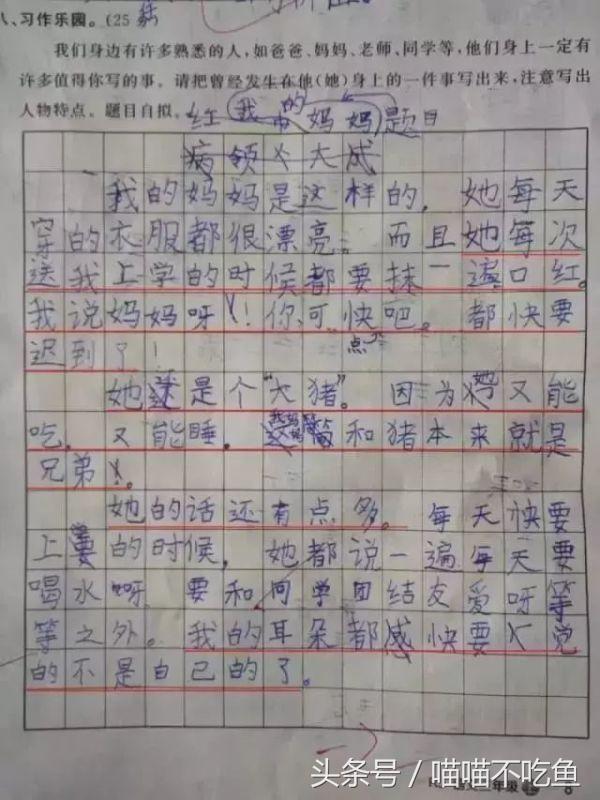 八、习作乐园。(25
我们身边有许多熟悉的人,如爸爸、妈妈、老师、同学等,他们身上一定有
许多值得你写的事。请把曾经发生在他(她)身上的一件事写出来,注意写出
人物特点。题目自拟。
我的妈妈 题目
病领 大
我的妈妈是这样的，她每天
穿的衣服都很漂亮。而且她每次
送我上学的时候都要抹一遍口红。
我说妈妈呀！你可快点吧。都快要
迟到了！
她还是个“大猪”。因为她又能
吃，又能睡，我妈妈简直和猪本来就是
兄弟。
她的话还有点多。每天快要
上学的时候，她都说一遍每天要
喝水呀 要和同学团结友爱呀等
等之外。我的耳朵都快要感觉
的不是自己的了。
头条号 / 喵喵不吃鱼
年级
8